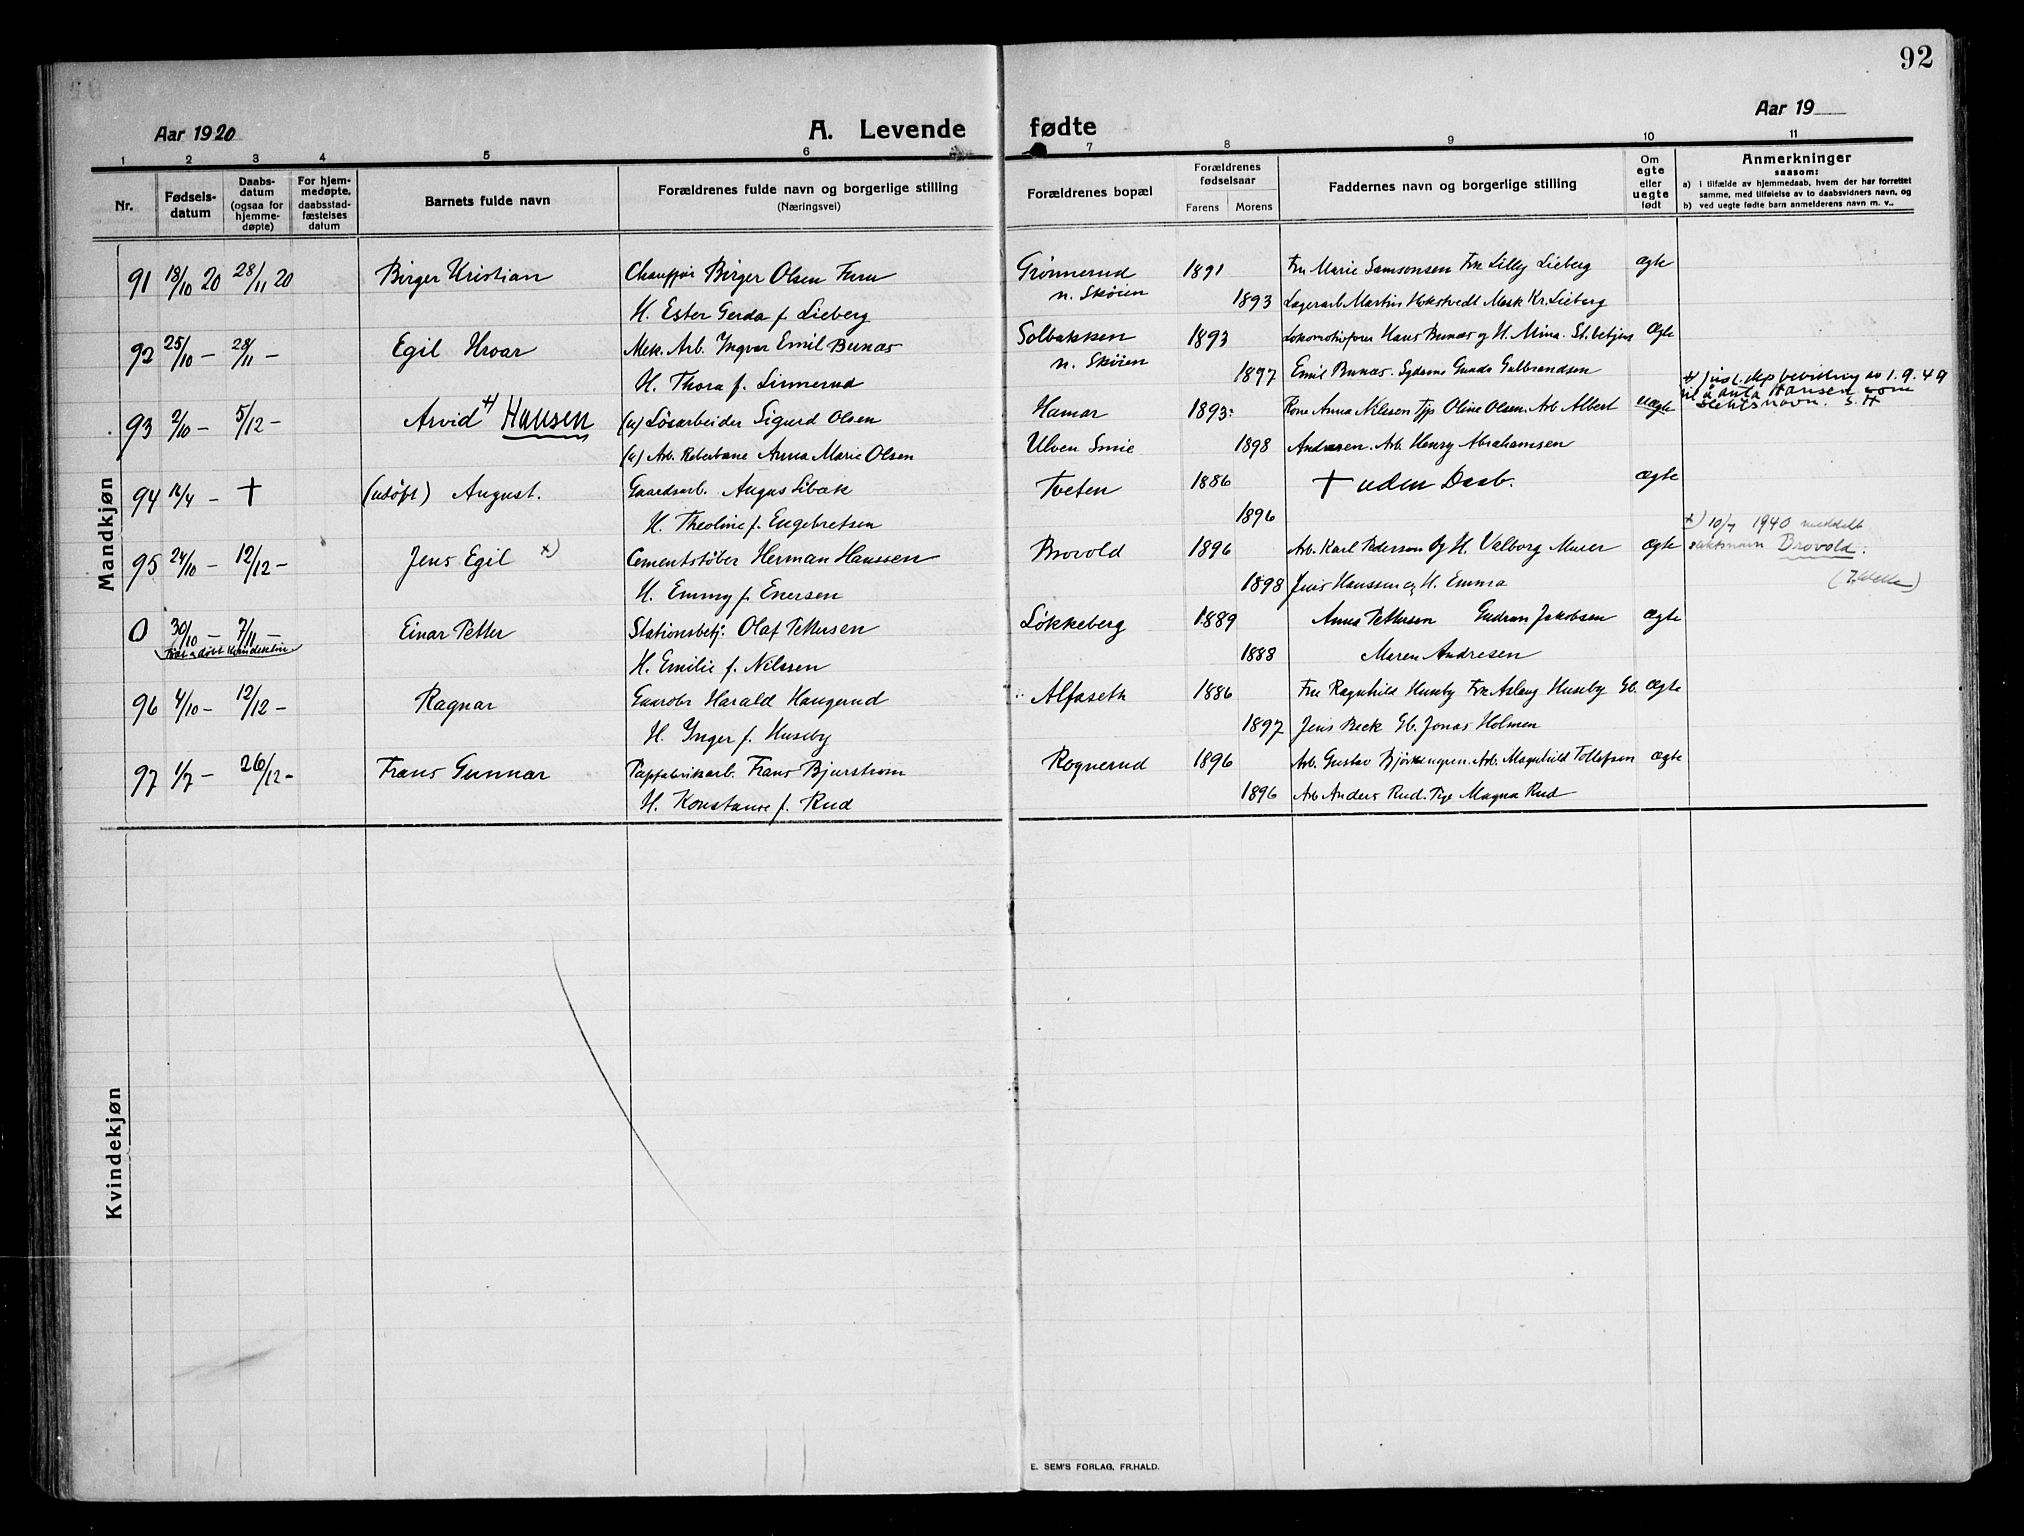 92
Aar 1920
A. Levende fødte
Aar 19
1 2 3 4 5 6 7 8 9 10 11
Nr.
Fødsels-
datum
Daabs-
datum
(ogsaa for
hjemme-
døpte)
For hjem-
medøpte,
daabsstad-
fæstelses
datum
Barnets fulde navn
Forældrenes fulde navn og borgerlige stilling
(Næringsvei)
Forældrenes bopæl
Forældrenes
fødselsaar
Farens Morens
Faddernes navn og borgerlige stilling
Om
egte
eller
uegte
født
Anmerkninger
saasom:
a) i tilfælde av hjemmedaab, hvem der har forrettet
samme, med tilføielse av to daabsvidners navn, og
b) ved uegte fødte barn anmelderens navn m. v.,
Mandkjøn
91 18/10 20 28/11 20 Birger Kristian Chauffør Birger Olsen Furu Grønnerud 1891 Fru Marie Samsonsen Frk Lilly Lieberg ægte
H. Ester Gerda f. Lieberg n. Skøien 1893 Lagerarb. Martin Hokstvedt Mask Kr. Lieberg
92 25/10 — 28/11 — Egil Hroar Mek. Arb. Ingvar Emil Bunæs Solbakken 1893 Lokomotivfører Hans Bunæs og H. Mina. St.betjent Ægte
H. Thora f. Linnerud n. Skøien 1897 Emil Bunæs. Sydame Gunda Gulbrandsen
93 2/10 — 5/12 — Arvid +) Hansen (u) Løsarbeider Sigurd Olsen Hamar 1893 Kone Anna Nilsen Tjp Oline Olsen. Arb Albert uægte
+) just. dep bevilling av 1.9.49
til å anta Hansen som
slektsnavn. S.H
(u) Arb. Reberbane Anna Marie Olsen Ulven Smie 1898 Andresen. Arb. Henry Abrahamsen
94 16/4 — † (udøpt) August. Gaardsarb. August Libæk Tveten 1886 † uden Daab. Ægte
H. Theoline f. Engebretsen 1896
95 24/10 — 12/12 — Jens Egil x) Cementstøber Herman Hanssen Brovold 1896 Arb. Karl Pederson Og H. Valborg Murer Ægte
x) 10/7 1940 meddelt
slektsnavn Brovold.
H. Emmy f. Enersen 1898 Jens Hanssen og H. Emma
0 30/10 — 7/11 — Einar Petter Stationsbetj: Olaf Pettersen Løkkeberg 1889 Anna Pettersen Gudrun Jakobsen Ægte
H. Emilie f. Nilssen 1888 Maren Andresen
96 4/10 — 12/12 — Ragnar Gaarbr Harald Haugerud Alfaseth 1886 Fru Ragnhild Huseby Frk Aslaug Huseby Gb. Ægte
H. Ynger f. Huseby 1897 Jens Beck Gb. Jonas Holmen
97 1/7 — 26/12 — Frans Gunnar Papfabrikarb. Frans Bjurstrøm Rognerud 1896 Arb. Gustav Bjørkengren. Arb. Magnhild Tollefsen Ægte
H. Konstance f. Rud 1896 Arb Anders Rud. Pige Magna Rud
Kvindekjøn
E. SEM'S FORLAG, FR.HALD.